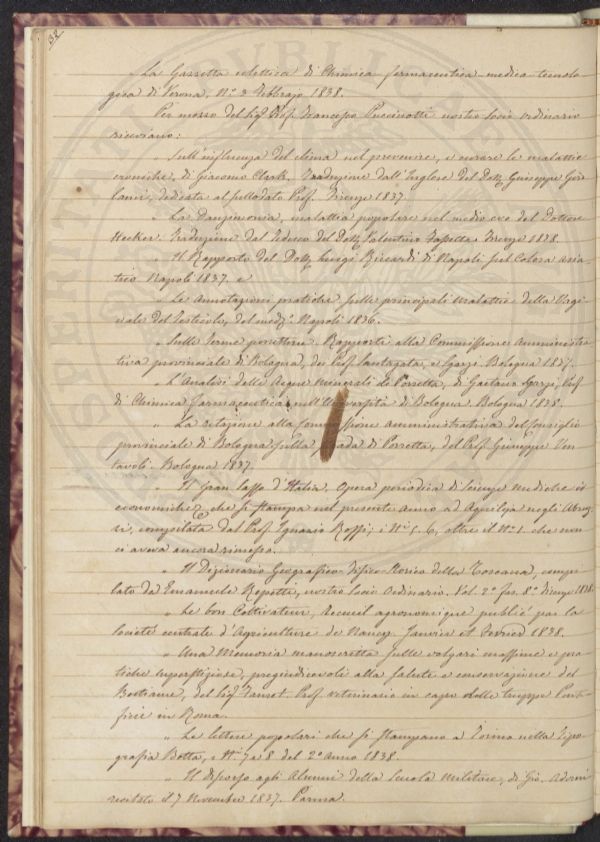 38
La Gazzetta eclettica di Chimica farmaceutica medica-tecnolo
gica di Verona, N.º 2 Febbrajo 1838.
Per mezzo del Sig. Prof. Francesco Puccinotti nostro Socio ordinario
riceviamo:
" Sull'influenza del clima nel prevenire, e curare le malattie
croniche, di Giacomo Clark. Traduzione dall'Inglese del Dott. Giuseppe
dedicata al sullodato Prof. Firenze 1837.
" La Danzimania, malattia popolare nel medio evo del Dottore
Hecker. Traduzione dal Tedesco del Dott. Valentino Fassetta. Firenze 1838.
" Il Rapporto del Dott. Luigi Ricardi di Napoli sul Colera asia
tico Napoli 1837. e
" Le Annotazioni pratiche sulle principali malattie della Vagi
nale del Testicolo, del med.º Napoli 1836.
" Sulle Terme porettane. Rapporti alla Commissione Amministra
tiva provinciale di Bologna, dei Prof. Santagata, e Sgarzi. Bologna 1837.
" L'Analisi delle Acque Minerali di Porretta, di Gaetano Sgarzi, Prof.
di Chimica farmaceutica nell'Università di Bologna. Bologna 1838.
" La relazione alla Commissione amministrativa del Consiglio
provinciale di Bologna sulla strada di Porretta, del Prof. Giuseppe Ven
turoli. Bologna 1837.
" Il Gran Sasso d'Italia. Opera periodica di Scienze mediche ed
economiche, che si stampa nel presente anno ad Aquila negli Abruz
zi, compilata dal Prof. Ignazio Rozzi; i N.i 5. 6, oltre il N.º 1. che non
ci aveva ancora rimesso.
" Il Dizionario Geografico-Fisico-Storico della Toscana, compi
lato da Emanuele Repetti, nostro Socio Ordinario. Vol. 2.º fas. 8.º Firenze 1838.
" Le bon Cultivateur, recueil agronomique publié par la
Société centrale d'Agriculture de Nancy. Janvier et Fevrier 1838.
" Una Memoria manoscritta sulle volgari massime e pra
tiche superstiziose, pregiudicevoli alla salute e conservazione del
Bestiame, del Sig. Prof. veterinario in capo delle truppe Ponti
ficie in Roma.
" Le letture popolari che si stampano a Torino nella Tipo
grafia Botta, i N.i 7 e 8 del 2.º Anno 1838.
" Il discorso agli Alunni della Scuola militare, di Gio. Adorni
recitato il 7 November 1837. Parma.